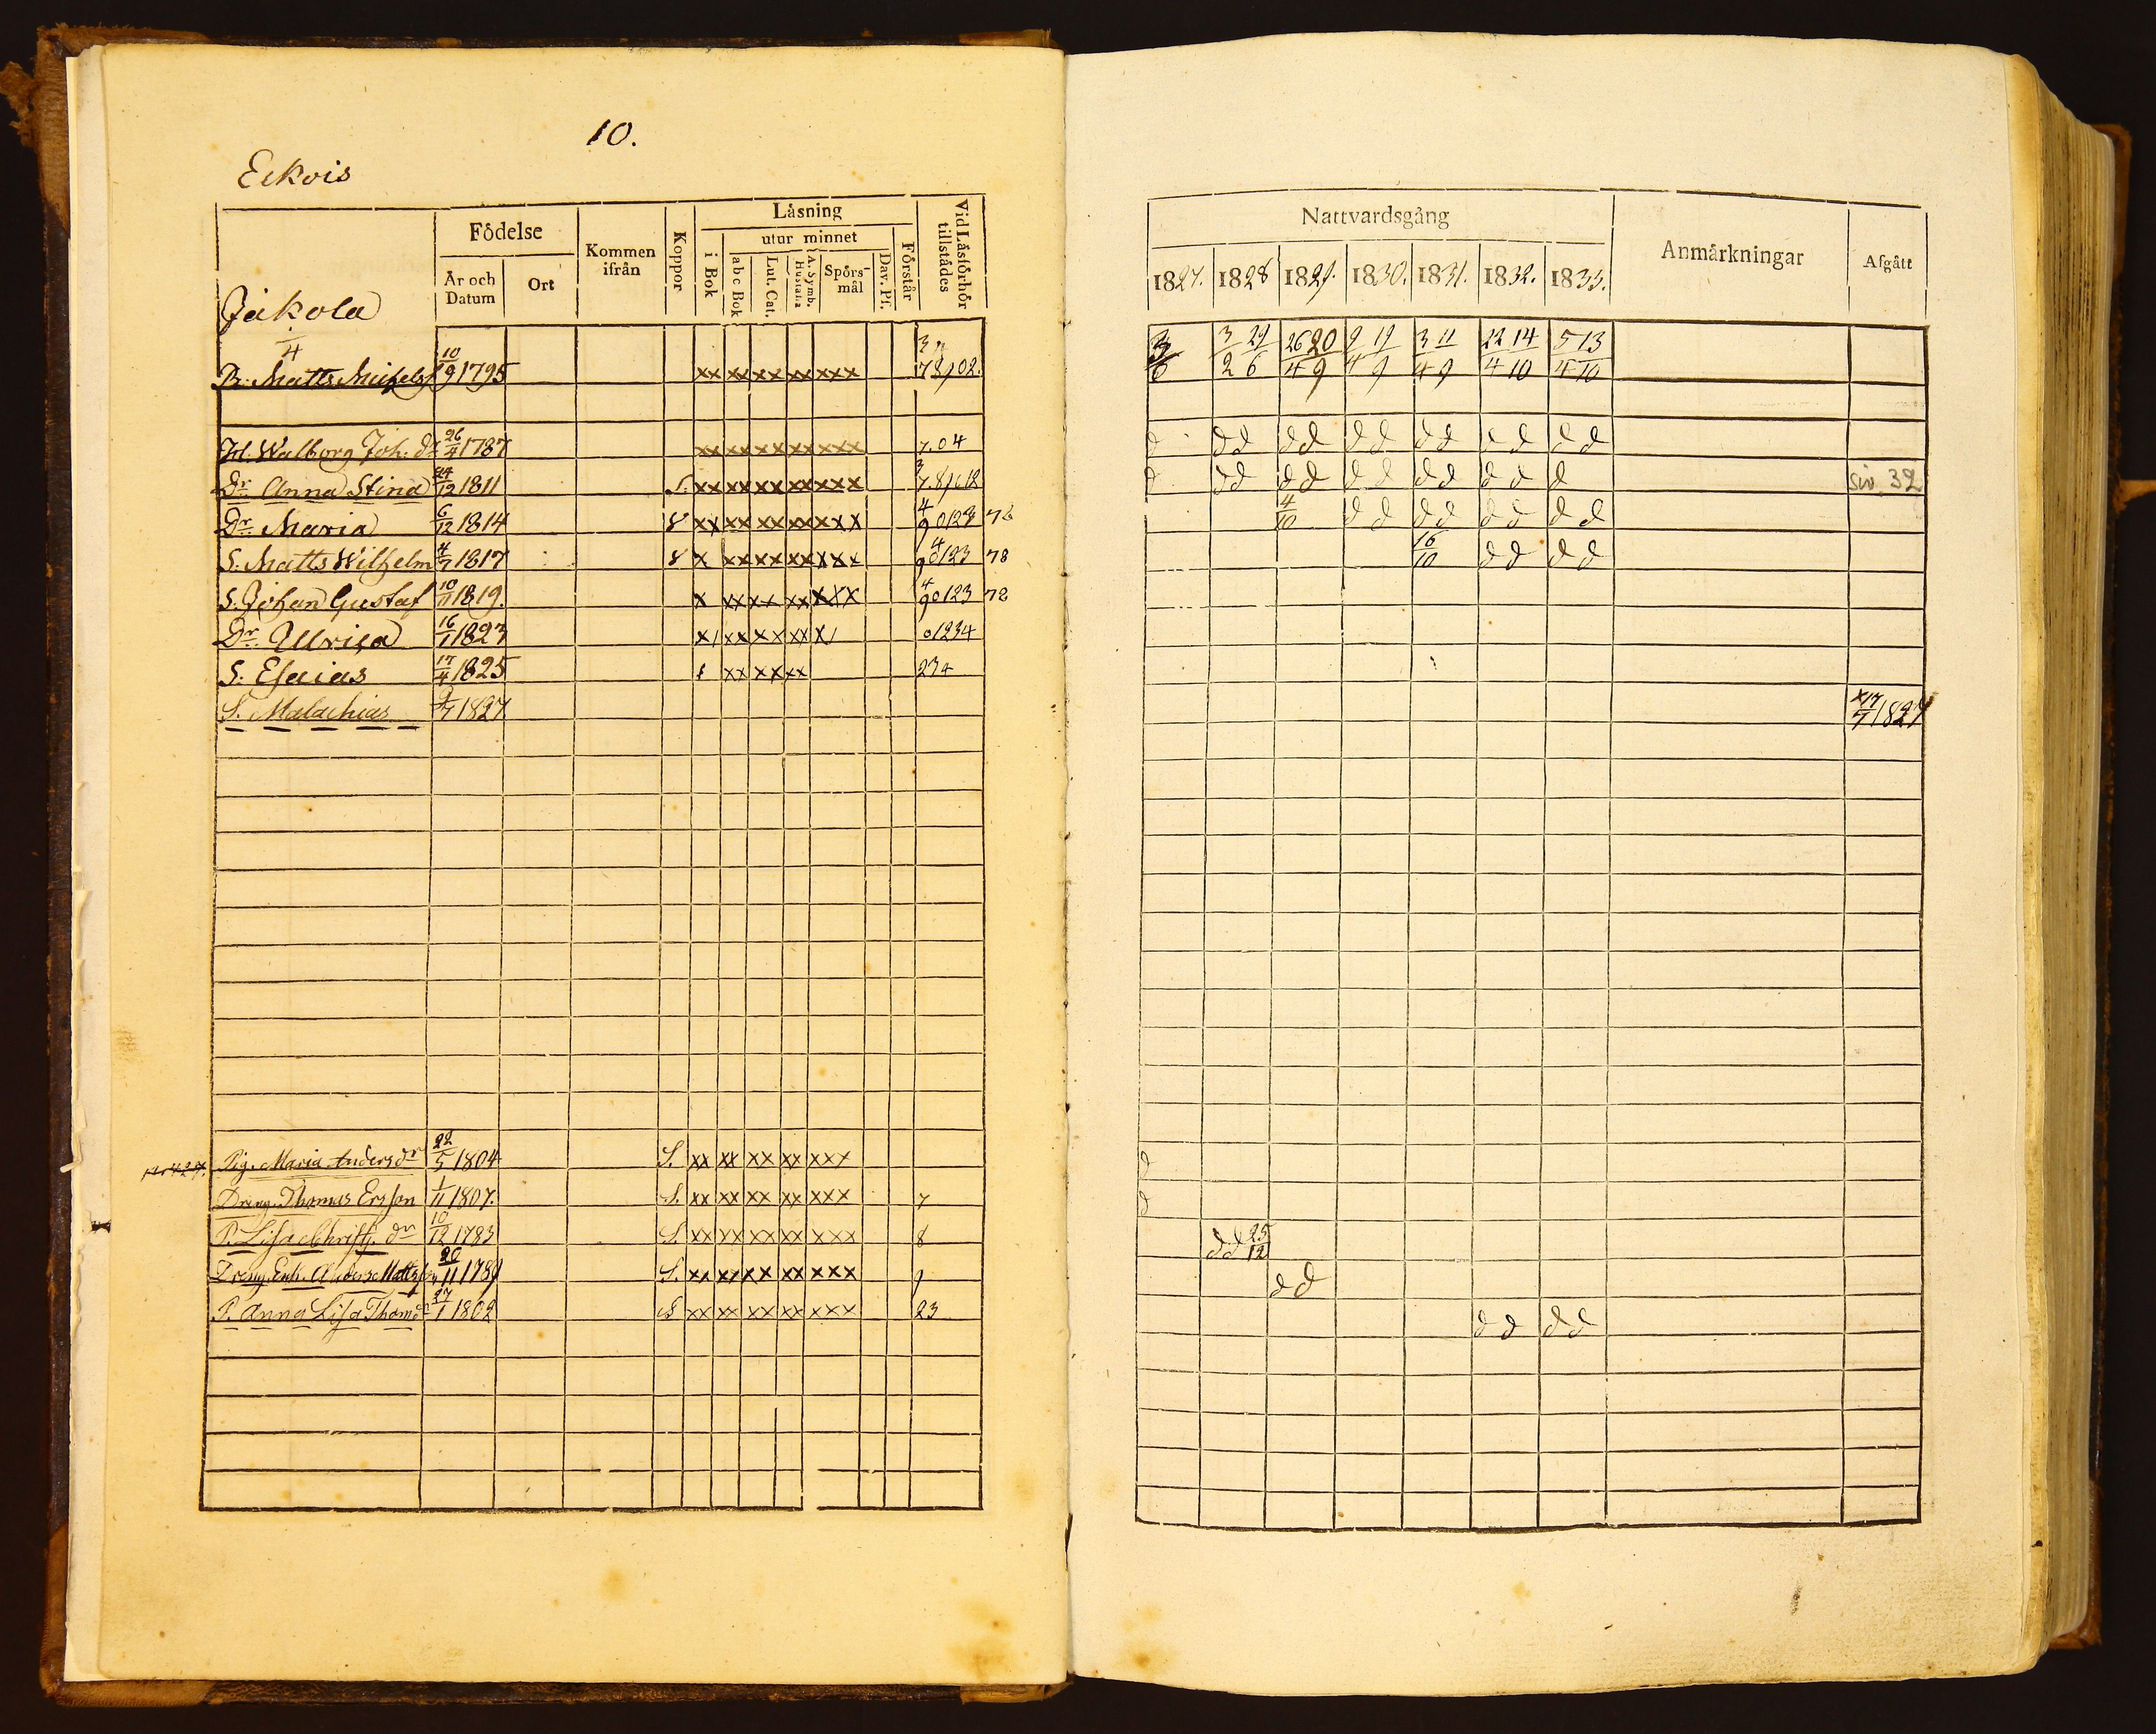 10.
Eckois
Födelse
Kommen ifrån
Koppor
Läsning
utur minnet
i Bok
abc Bok
Lut. Cat.
A. Symb. Hustafla
Spörsmål
Dav. Ps.
Förstår
Vid Läsförhör tillstädes
År och Datum
Ort
Jäkola
4
B. Matts Michelss 10/9 1795 xx xx xx xx xxx
H. Walborg Joh. dr 26/4 1787 xx xx xx xx xxx 7.04
Dr Anna Stina 24/12 1811 S. xx xx xx xx xxx
Dr Maria 6/12 1814 xx xx xx xx xxx
S. Matts Wilhelm 4/7 1817 x xx xx xx xxx 78
S. Johan Gustaf 10/11 1819. x xx xx xx xxx 72
Dr Ullrica 16/1 1823 x/ xx xx xx x/ 01234
S. Esaias 17/4 1825 xx xx xx 234
S. Malachias 9/7 1827
Pig. Maria Anders dr 22/5 1804 S. xx xx xx xx xxx
Dreng. Thomas Ersson 1/11 1807. S. xx xx xx xx xxx 7
P. Lisa Christ. dr 10/12 1783 S. xx xx xx xx xxx 8
Dreng. Enk. Anders Mattss 20/11 1789 S. xx xx xx xx xxx 9
P. Anna Lisa Thom dr 27/1 1802 S xx xx xx xx xxx 23
Nattvardsgång
Anmärkningar
Afgått
1827. 1828 1829. 1830. 1831. 1832. 1833.
3/6 3/2 29/6 26/4 20/9 9/4 19/9 3/4 11/9 22/4 14/10 5/4 13/10
d dd dd dd dd dd dd
d dd dd dd dd dd d siv. 32
4/10 dd dd dd dd
16/10 dd dd
x 17/7 1827
d
d
dd 25/12
dd
dd dd